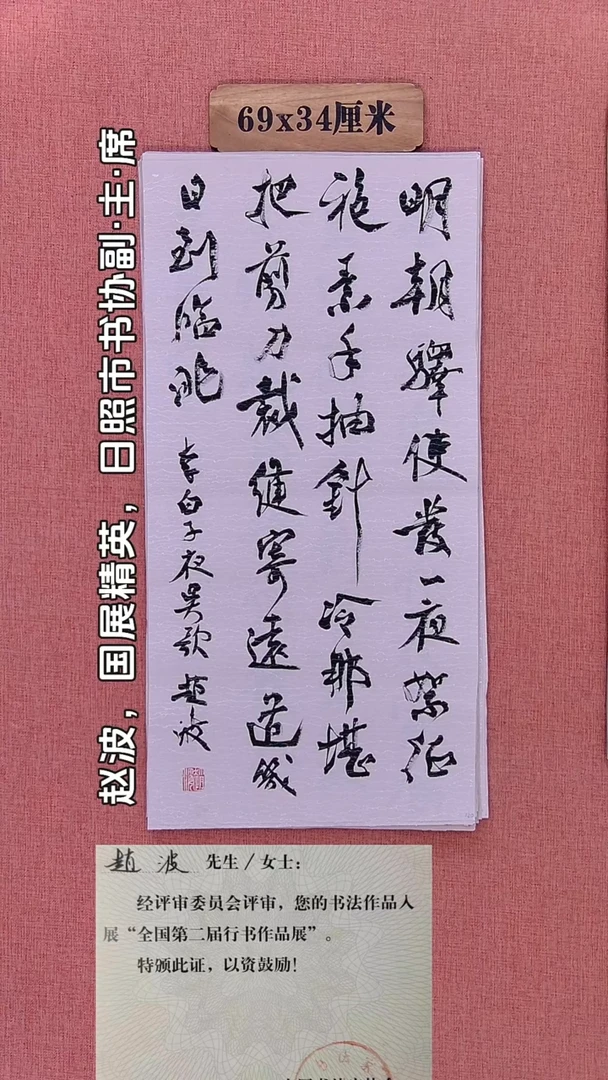 69x34厘米
赵波，国展精英，日照市书协副·主·席
明朝驿使發一夜絮征
袍素手抽針冷那堪
把剪刀裁縫寄遠道幾
日到臨洮
李白子夜吳歌 趙波
趙波 先生/女士：
经评审委员会评审，您的书法作品入
展“全国第二届行书作品展”。
特颁此证，以资鼓励！